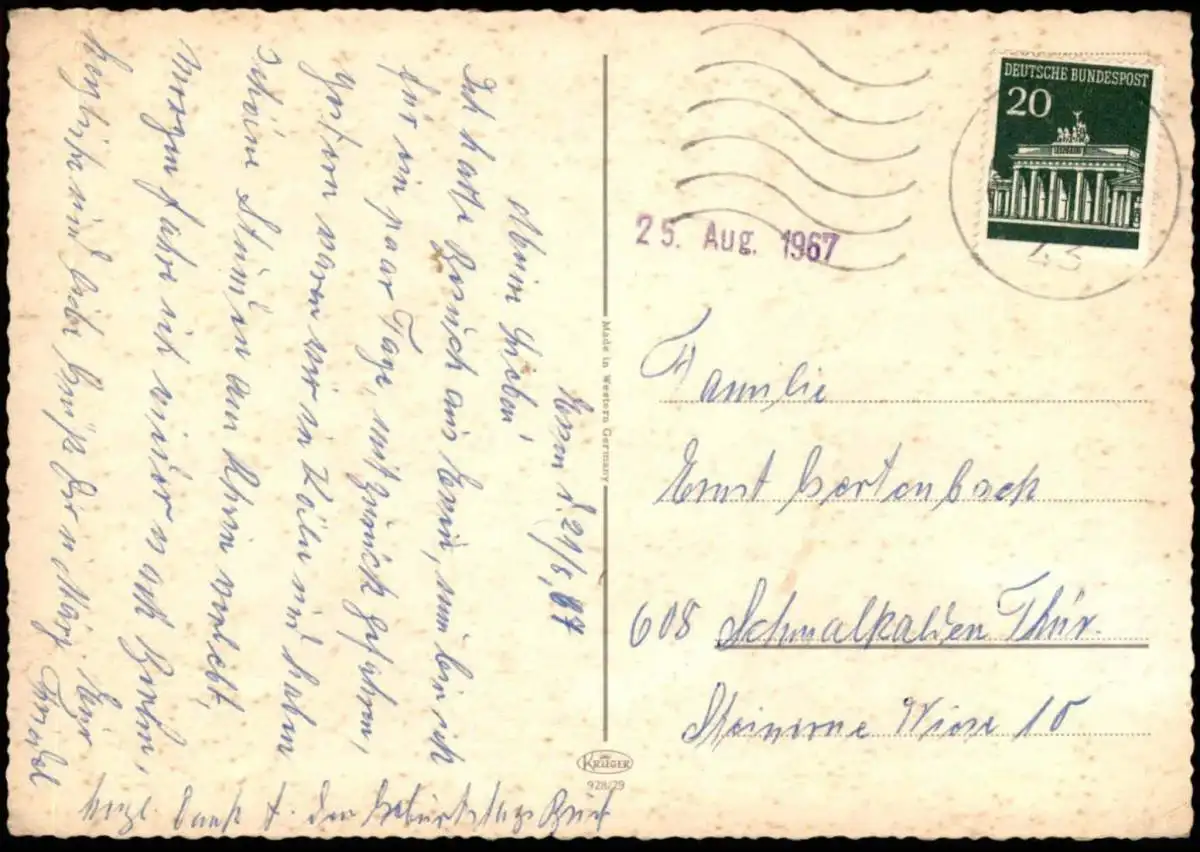 Essen d. 21/8. 67
Meine Lieben!
Ich hatte Besuch aus Essen, nun bin ich
für ein paar Tage mit zurück gefahren,
gestern waren wir in Köln und haben
schöne Stunden am Rhein verlebt,
morgen fahre ich wieder nach Berlin,
herzliche und liebe Grüße
Friedel
herzl. Dank f. den Geburtstags Brief
Made in Western Germany
KRÜGER
928/29
DEUTSCHE BUNDESPOST
20
25. Aug. 1967
43
Familie
Ernst Gertenbach
608 Schmalkalden Thür.
Steinerne Wiese 10